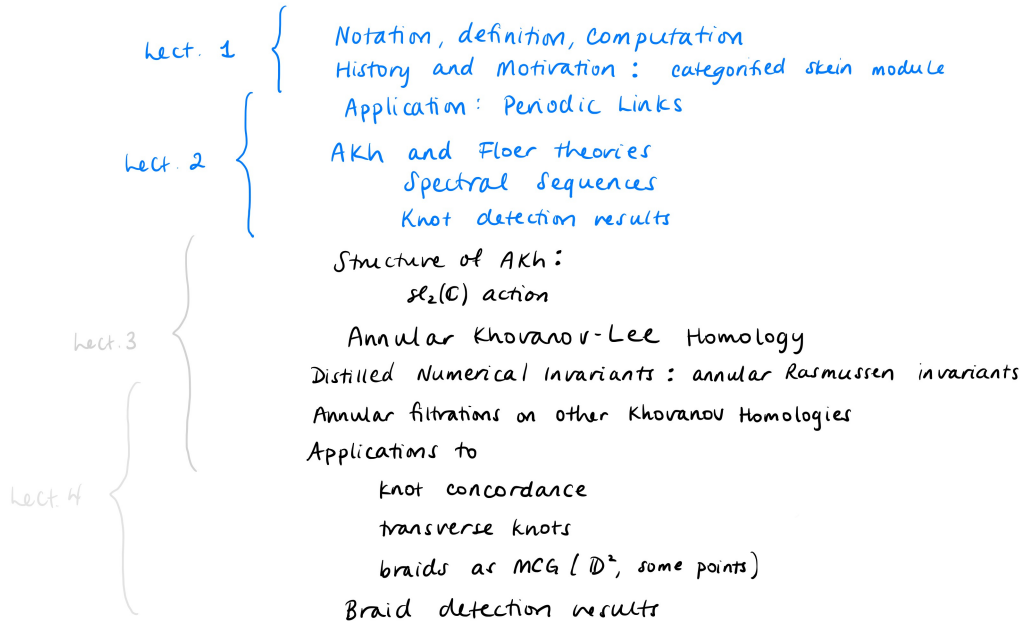 Lect. 1
Notation, definition, computation
History and Motivation : categorified skein module
Application: Periodic Links
Lect. 2
AKh and Floer theories
Spectral Sequences
Knot detection results
Structure of AKh :
sl₂(ℂ) action
Lect. 3
Annular Khovanov-Lee Homology
Distilled Numerical Invariants : annular Rasmussen invariants
Annular filtrations on other Khovanov Homologies
Applications to
Lect. 4
knot concordance
transverse knots
braids as MCG ( 𝔻², some points)
Braid detection results